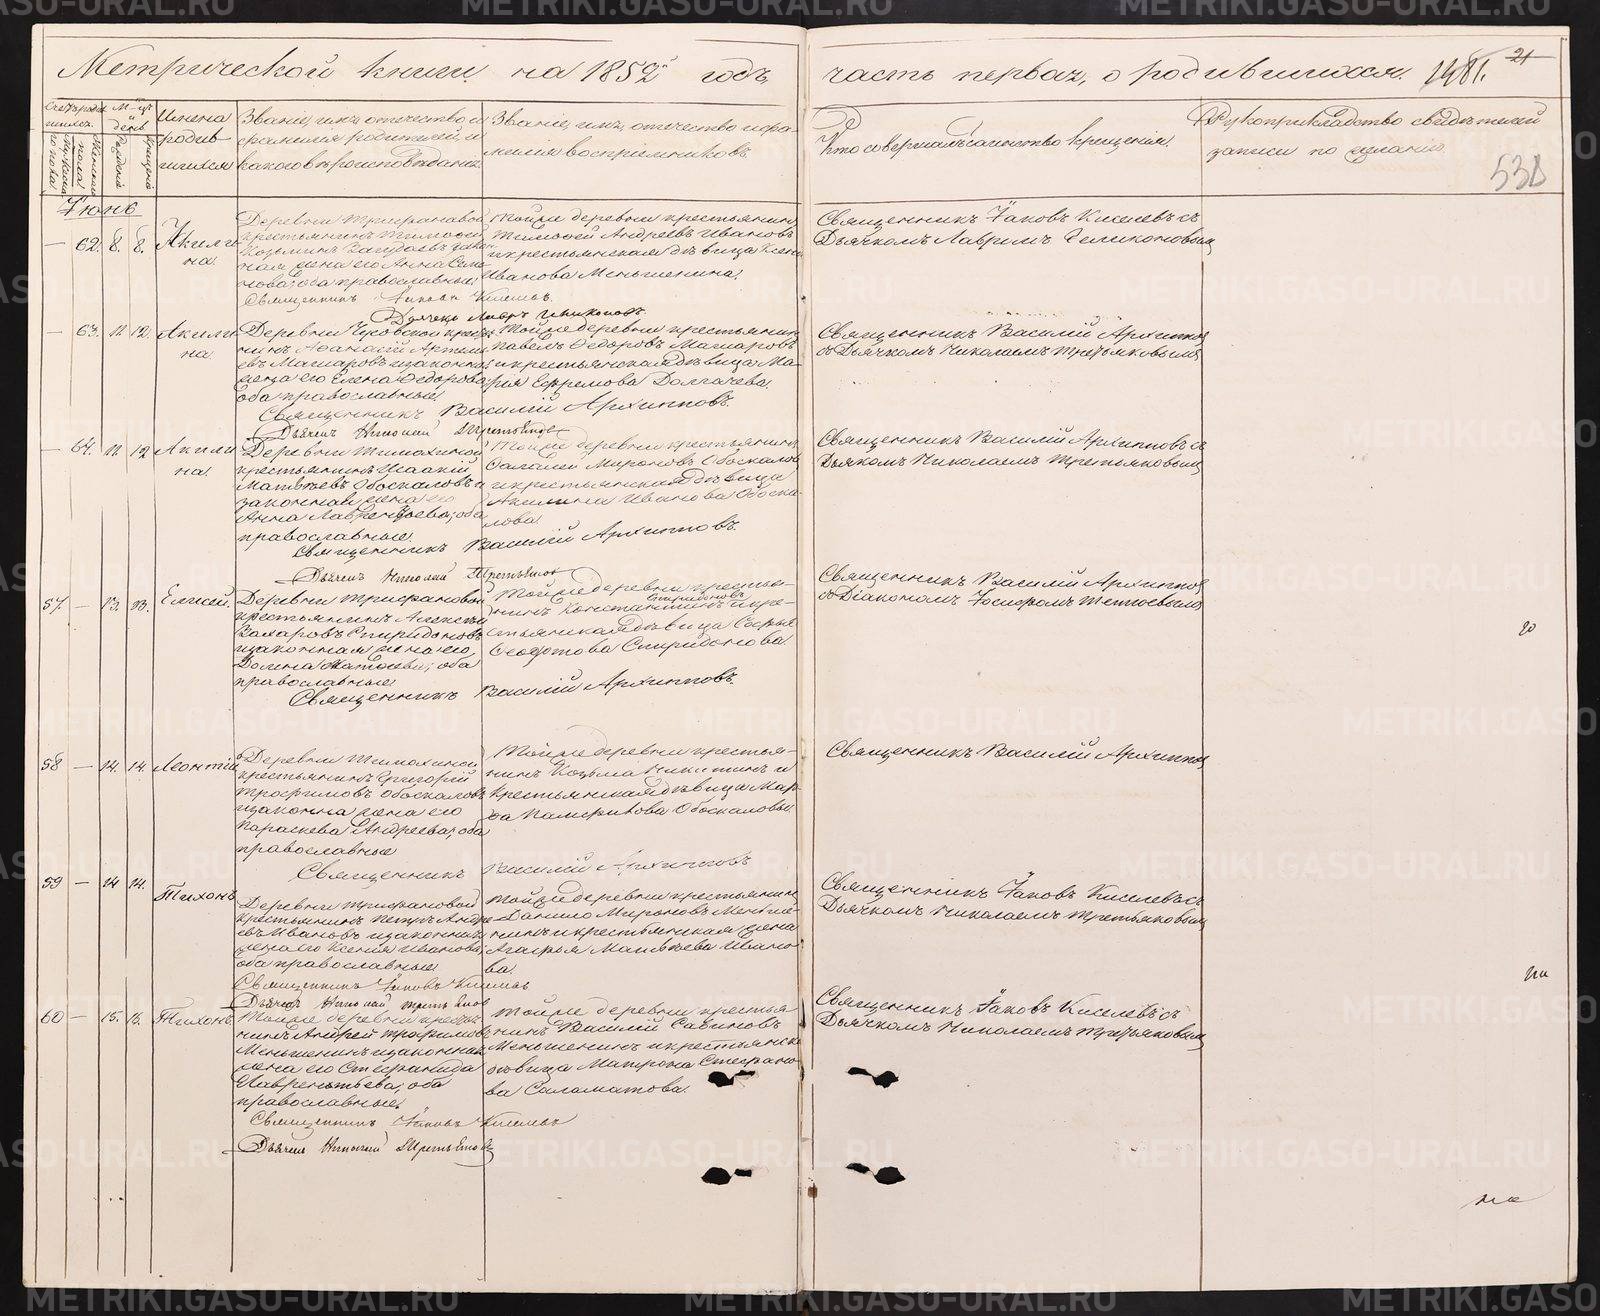 Метрической книги на 1852й годъ часть первая, о родившихся.
21
538
Счетъ родившихся.
Мужеска пола
Женска пола
М-цъ и день
Рожденія
Крещенія
Имена родившихся
Званіе, имя, отечество и
фамилія родителей, и
какого вѣроисповѣданія.
Званіе, имя, отечество и фа-
милія воспріемниковъ.
Кто совершалъ таинство крещенія.
Рукоприкладство свидѣтелей
записи по желанію.
Іюнь
— 62. 8. 8. Акили-
на.
Деревни Трифановой
крестьянинъ Тимофей
Козьминъ
жена его Анна
оба православные
Священникъ Іаковъ Киселевъ.
Тойже деревни крестьянинъ
Тимофей Андреевъ Ивановъ
и крестьянская дѣвица
Иванова Меньшенина.
Священникъ Іаковъ Киселевъ съ
Дьячкомъ Лавромъ Геликоновымъ
— 63. 11 12. Акили-
на.
Деревни
нинъ Афанасій
ея жена его Елена Федорова
оба православные.
Священникъ Василій Архиповъ.
Дьячекъ Николай Третьяковъ
Тойже деревни крестьянинъ
Павелъ Федоровъ
и крестьянская дѣвица Ма-
рія Ефремова Долгачева.
Священникъ Василій Архиповъ
съ Дьячкомъ Николаемъ Третьяковымъ
— 64. 11 12 Акили-
на.
Деревни Тимохиной
крестьянинъ Исаакій
Матвѣевъ Обоскаловъ и
законная жена его
Анна Лаврентьева; оба
православные.
Священникъ Василій Архиповъ.
Дьячекъ Николай Третьяковъ
Тойже деревни крестьянинъ
Мироновъ Обоскаловъ
и крестьянская дѣвица
Акилина Иванова Обоска-
лова.
Священникъ Василій Архиповъ съ
Дьякомъ Николаемъ Третьяковымъ
57. — 13. 13. Елисей.
Деревни Трифановой
крестьянинъ Алексѣй
Захаровъ Спиридоновъ
и законная жена его
Матвѣева; оба
православные
Священникъ Василій Архиповъ.
Тойже деревни крестья-
нинъ Константинъ Спиридоновъ и кре-
стьянская дѣвица Софья
Спиридонова
Священникъ Василій Архиповъ
съ Діакономъ Іосифомъ
58 — 14. 14. Леонтій
Деревни Тимохиной
крестьянинъ Григорій
Трофимовъ Обоскаловъ
и законна жена его
Параскева Андреева; оба
православные
Священникъ Василій Архиповъ
Тойже деревни крестья-
нинъ Козьма Никитинъ и
крестьянская дѣвица Мар-
фа Обоскаловы
Священникъ Василій Архиповъ
59 — 14 14. Тихонъ
Деревни Трифановой
крестьянинъ Петръ Андре-
евъ Ивановъ и законная
жена его Ксенія Иванова;
оба православные
Священникъ Іаковъ Киселевъ
Дьячекъ Николай Третьяковъ
Тойже деревни крестьянинъ
Данило Мироновъ Меньше-
нинъ и крестьянская жена
Агафья Матвѣева Ивано-
ва.
Священникъ Іаковъ Киселевъ съ
Дьячкомъ Николаемъ Третьяковымъ
60 — 15. 15. Тихонъ
Тойже деревни крестья-
нинъ Андрей Трофимовъ
Меньшенинъ и законная
жена его Стефанида
Лаврентьева; оба
православные.
Священникъ Іаковъ Киселевъ
Дьячекъ Николай Третьяковъ
Тойже деревни крестья-
нинъ Василій Савиновъ
Меньшенинъ и крестьянска
дѣвица Матрона Стефано-
ва Саламатова.
Священникъ Іаковъ Киселевъ съ
Дьячкомъ Николаемъ Третьяковымъ
METRIKI.GASO-URAL.RU